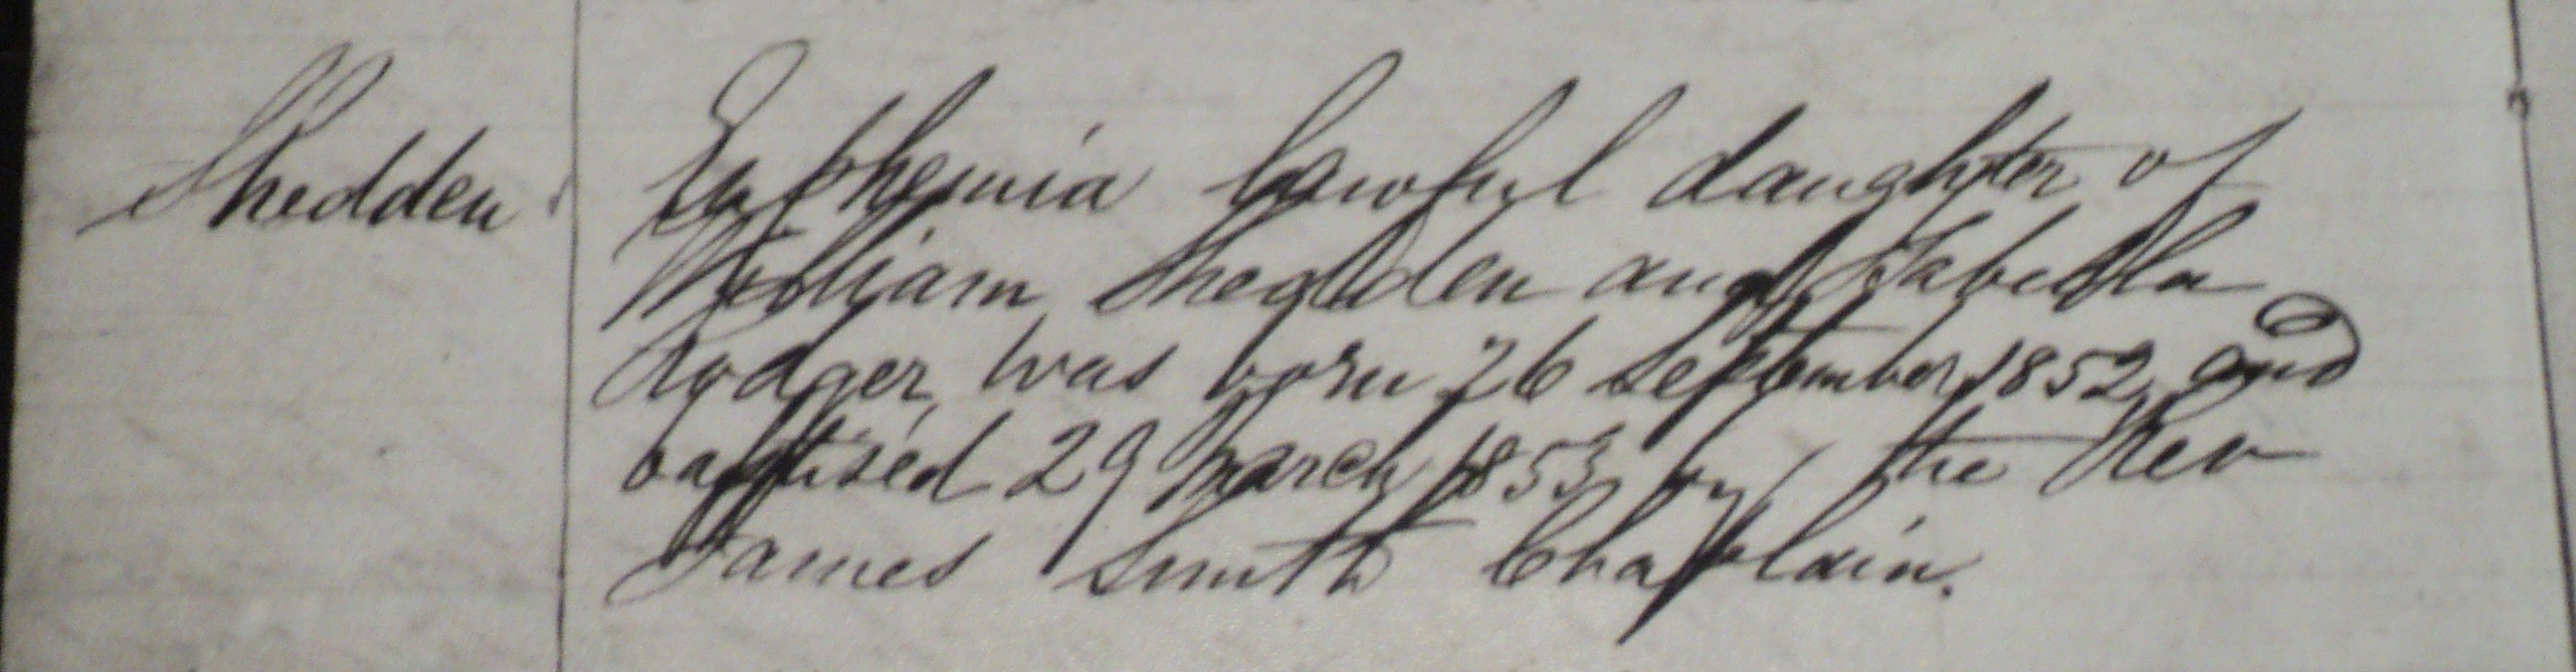 Shedden
Euphemia lawful daughter of
William Shedden and Isabella
Rodger, was born 26 September 1852 and
baptised 29 March 1853 by the Rev
James Smith Chaplain.